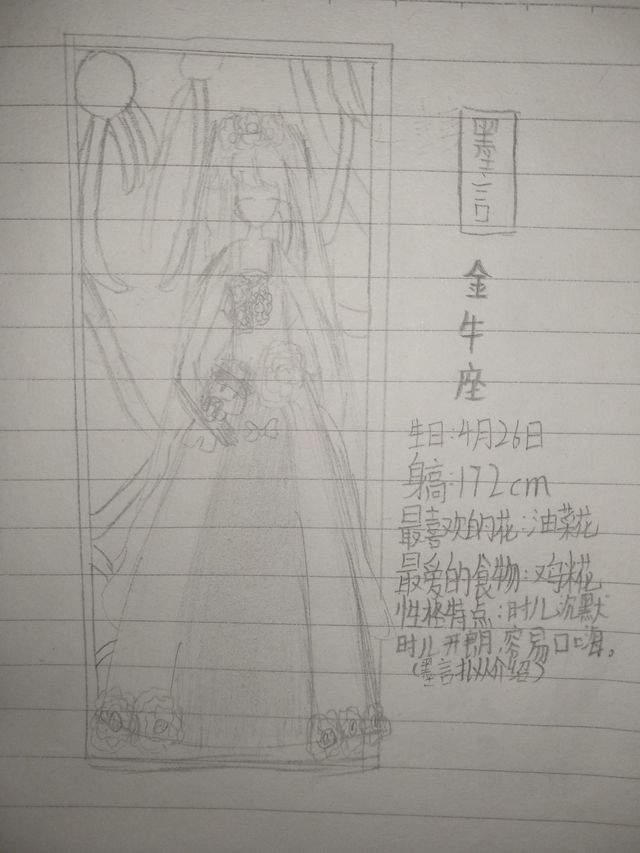 墨言
金牛座
生日:4月26日
身高:172cm
最喜欢的花:油菜花
最爱的食物:鸡米花
性格特点:时儿沉默
时儿开朗,容易口嗨。
(墨言扒从介绍)